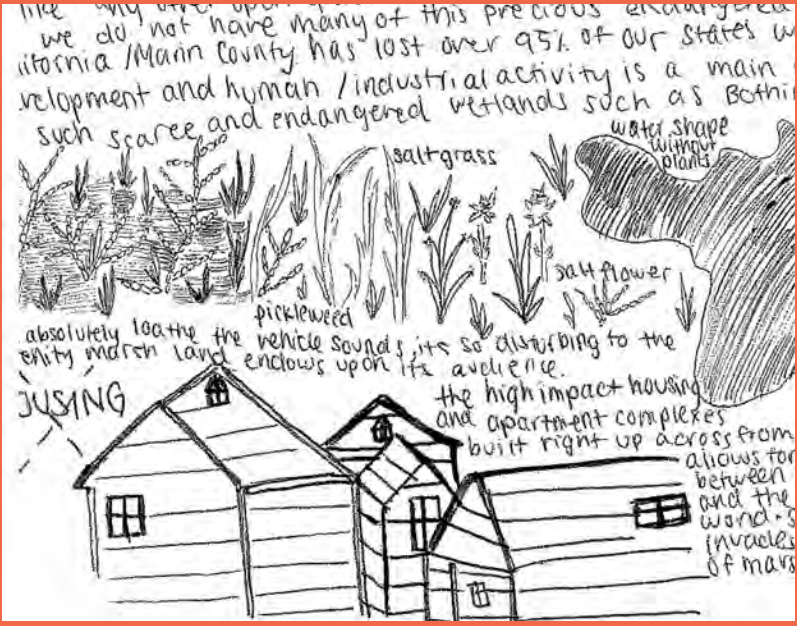 like any other upon
we do not have many of this precious endangered
lifornia / Marin County has lost over 95% of our states w
velopment and human / industrial activity is a main
such scarce and endangered wetlands such as Bothi
water shape
without
plants
saltgrass
salt flower
pickleweed
absolutely loathe the vehicle sounds, its so disturbing to the
enity marsh land endows upon its audience.
OUSING
the high impact housing
and apartment complexes
built right up across from
allows for
between
and the
world.s
invades
of mars